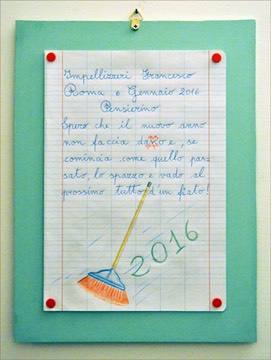 Impellizzeri Francesco
Roma 6 Gennaio 2016
Pensierino
Spero che il nuovo anno
non faccia danno e, se
comincia come quello pas-
sato, lo spazzo e vado al
prossimo tutto d'un fiato!
2016